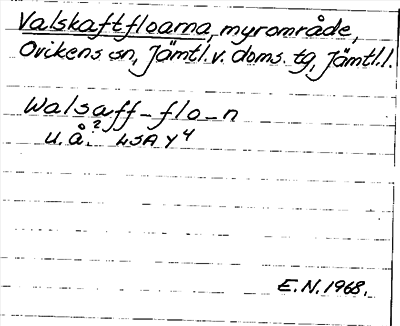 Valskaftfloarna, myrområde,
Ovikens sn, Jämtl.v. doms. tg, Jämtl.l.
Walsaff-flo-n
?
u.å. LSA Y4
E.N.1968.